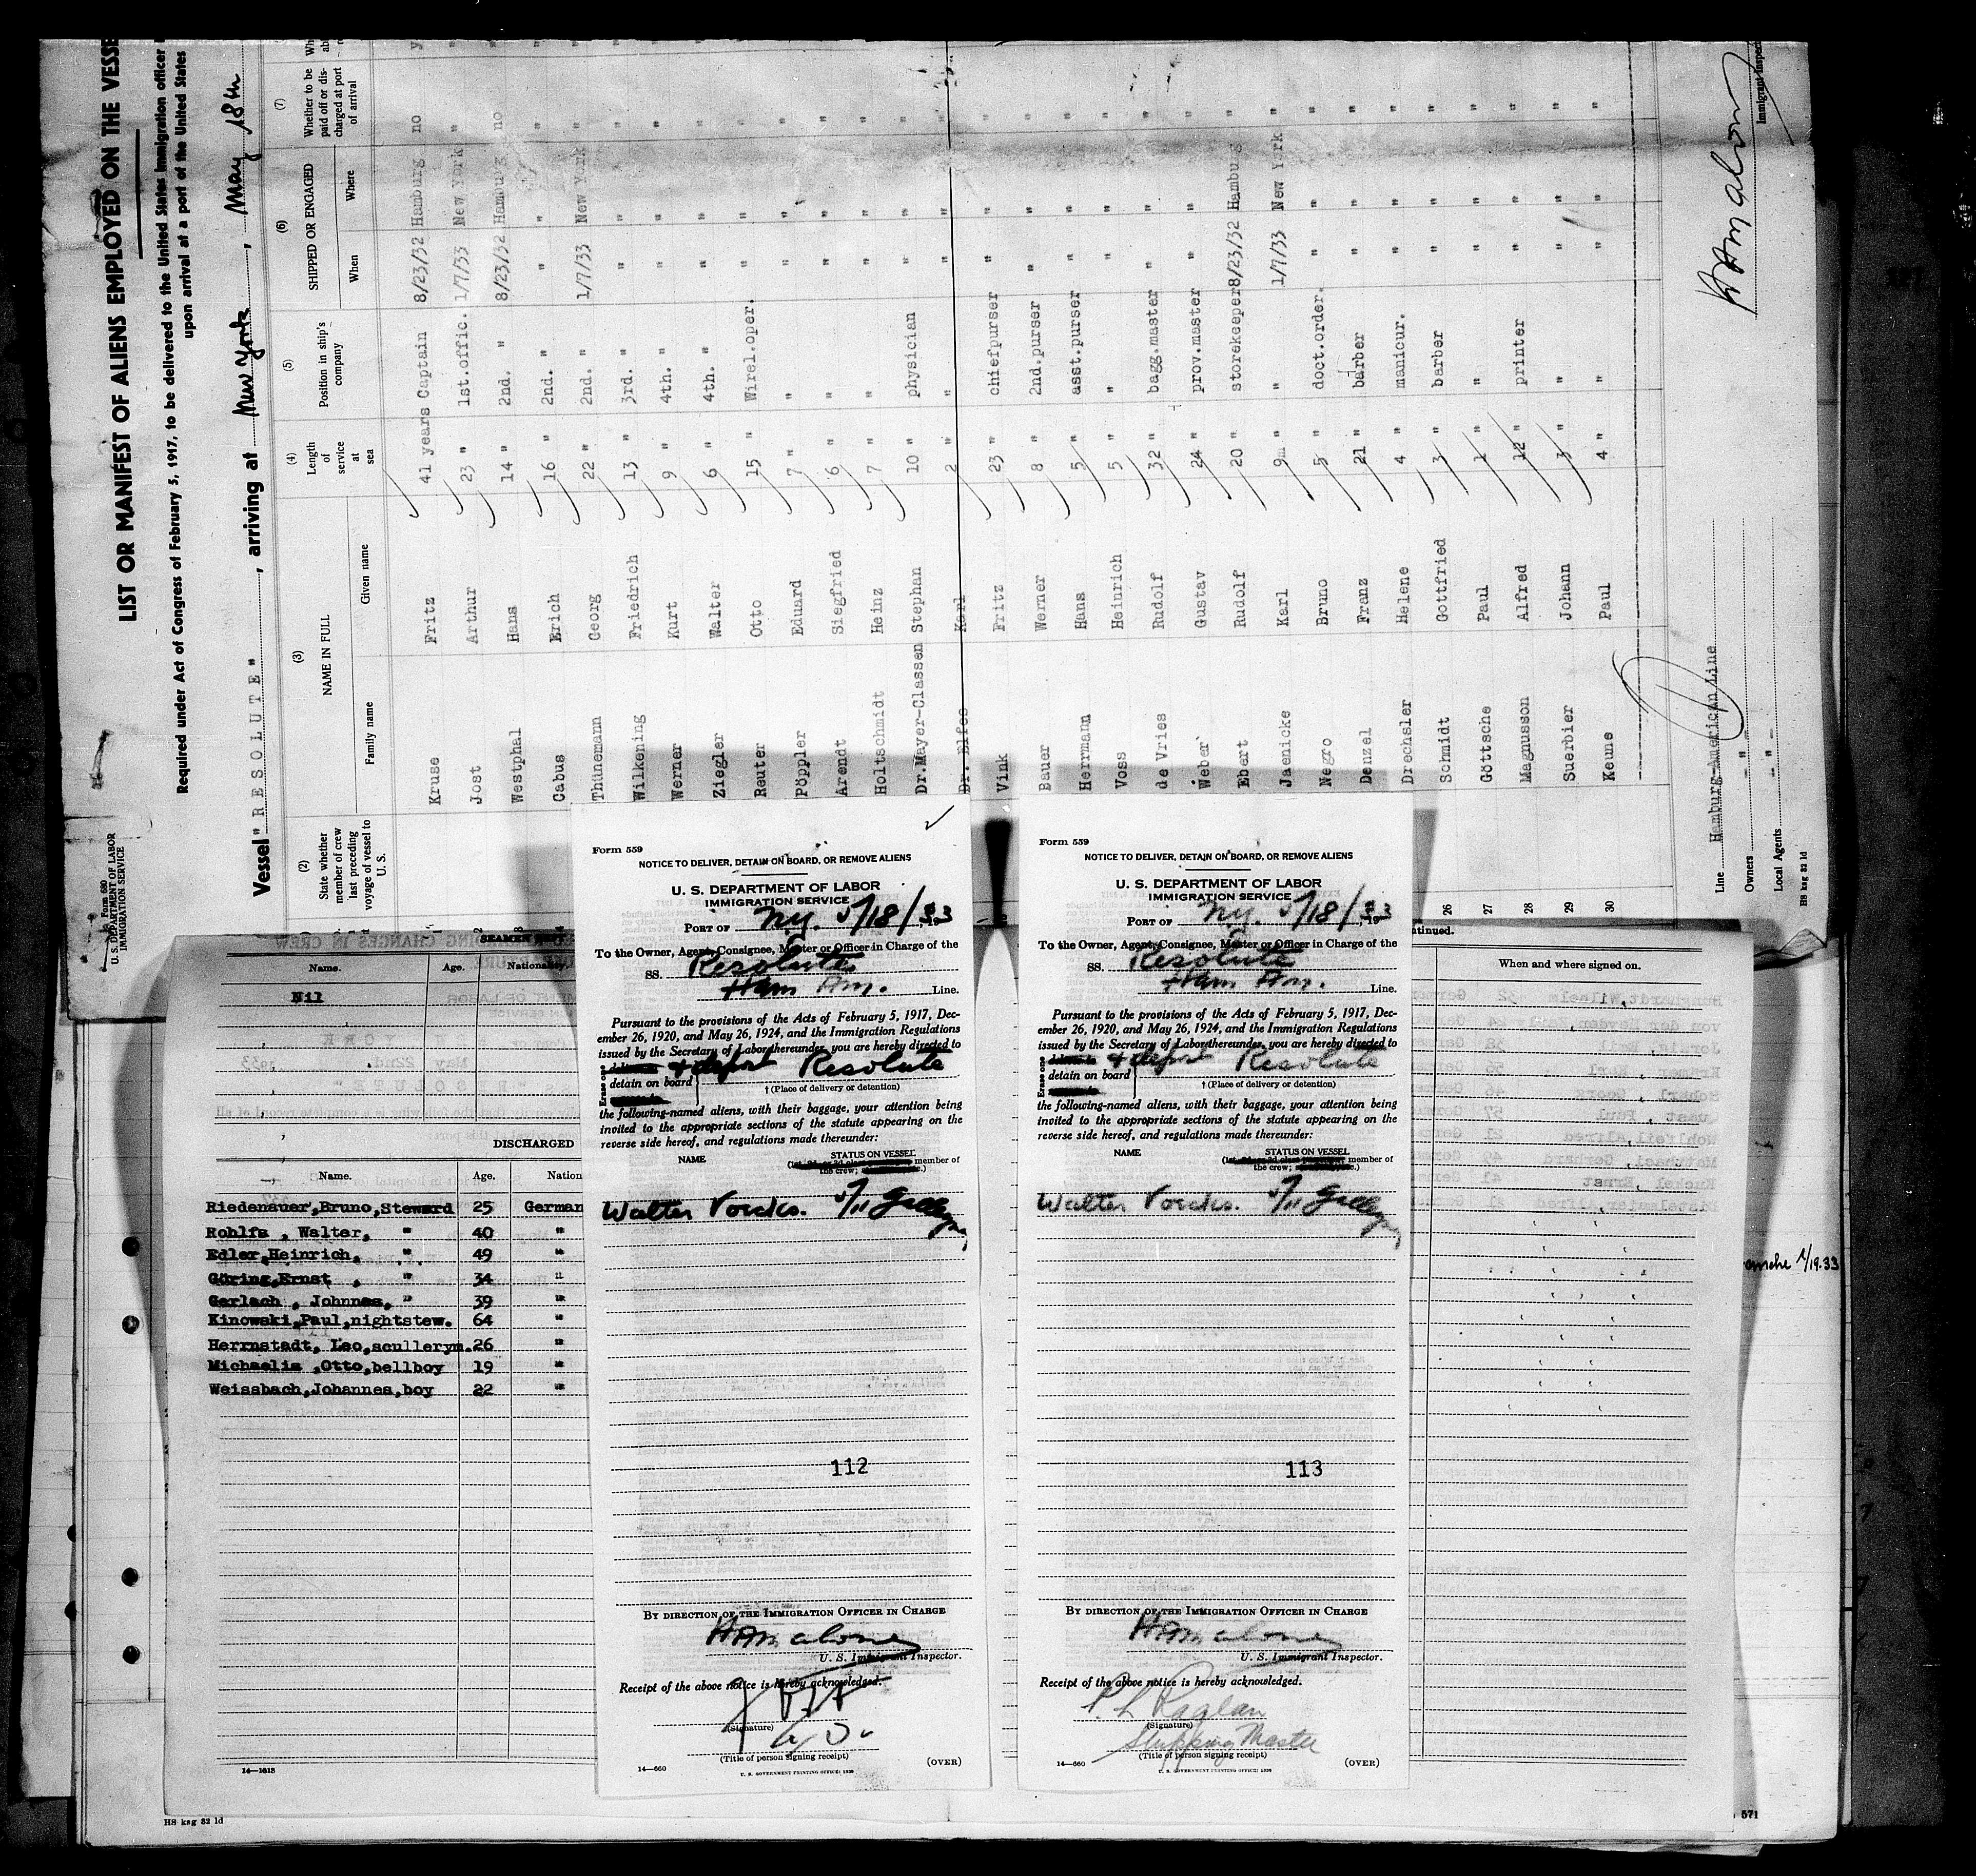 LIST OR MANIFEST OF ALIENS EMPLOYED ON THE VESSE
Required under Act of Congress of February 5, 1917, to be delivered to the United States immigration officer
upon arrival at a port of the United States
Vessel "RESOLUTE", arriving at New York, May 18th
Form 680
U. S. DEPARTMENT OF LABOR
IMMIGRATION SERVICE
(2) State whether member of crew last preceding voyage of vessel to U. S.
(3) NAME IN FULL
Family name Given name
(4) Length of service at sea
(5) Position in ship's company
(6) SHIPPED OR ENGAGED
When Where
(7) Whether to be paid off or discharged at port of arrival
Kruse Fritz 41 years Captain 8/23/32 Hamburg no
Jost Arthur 23 " 1st.offic. 1/7/33 New York "
Westphal Hans 14 " 2nd. " 8/23/32 Hamburg no
Cabus Erich 16 " 2nd. " " " "
Thünemann Georg 22 " 2nd. " 1/7/33 New York "
Wilkening Friedrich 13 " 3rd. " " " "
Werner Kurt 9 " 4th. " " " "
Ziegler Walter 6 " 4th. " " " "
Reuter Otto 15 " Wirel.oper. " " "
Pöppler Eduard 7 " " " " "
Arendt Siegfried 6 " " " " "
Holtschmidt Heinz 7 " " " " "
Dr.Mayer-Classen Stephan 10 " physician " " "
Dr. Elfes Karl 2 " " " " "
Vink Fritz 23 " chiefpurser " " "
Bauer Werner 8 " 2nd.purser " " "
Herrmann Hans 5 " asst.purser " " "
Voss Heinrich 5 " " " " "
de Vries Rudolf 32 " bagg.master " " "
Weber Gustav 24 " prov.master " " "
Ebert Rudolf 20 " storekeeper 8/23/32 Hamburg "
Jaenicke Karl 9 " " 1/7/33 New York "
Negro Bruno 5 " doct.order. " " "
Denzel Franz 21 " barber " " "
Drechsler Helene 4 " manicur. " " "
26 Schmidt Gottfried 3 " barber " " "
27 Göttsche Paul 1 " " " " "
28 Magnusson Alfred 12 " printer " " "
29 Suerbier Johann 3 " " " " "
30 Keune Paul 4 " " " " "
Line Hamburg-American Line
Owners " "
Local Agents " "
HS ksg 82 1d
HAMalone
Immigrant Inspec
Name. Age. Nationality.
Nil
DISCHARGED
Name. Age. Nation
Riedenauer,Bruno,Steward 25 German
Rohlfs , Walter, " 40 "
Edler,Heinrich, " 49 "
Göring,Ernst , " 34 "
Gerlach , Johnnes, " 39 "
Kinowski,Paul,nightstew. 64 "
Herrnstadt, Leo,scullerym. 26 "
Michaelis ,Otto,bellboy 19 "
Weissbach,Johannes,boy 22 "
14—1613
HS ksg 82 1d
Form 559
NOTICE TO DELIVER, DETAIN ON BOARD, OR REMOVE ALIENS
U. S. DEPARTMENT OF LABOR
IMMIGRATION SERVICE
PORT OF NY. 5/18/33
To the Owner, Agent, Consignee, Master or Officer in Charge of the
SS. Resolute
Ham Am. Line.
Pursuant to the provisions of the Acts of February 5, 1917, Dec-
ember 26, 1920, and May 26, 1924, and the Immigration Regulations
issued by the Secretary of Labor thereunder, you are hereby directed to
Erase one
detain on board & deport Resolute
† (Place of delivery or detention)
the following-named aliens, with their baggage, your attention being
invited to the appropriate sections of the statute appearing on the
reverse side hereof, and regulations made thereunder:
NAME STATUS ON VESSEL
member of
the crew;
Walter
112
BY DIRECTION OF THE IMMIGRATION OFFICER IN CHARGE
HAMalone
U. S. Immigrant Inspector.
Receipt of the above notice is hereby acknowledged.
(Signature)
(Title of person signing receipt)
14—560 (OVER)
U. S. GOVERNMENT PRINTING OFFICE: 1930
Form 559
NOTICE TO DELIVER, DETAIN ON BOARD, OR REMOVE ALIENS
U. S. DEPARTMENT OF LABOR
IMMIGRATION SERVICE
PORT OF NY. 5/18/33
To the Owner, Agent, Consignee, Master or Officer in Charge of the
SS. Resolute
Ham Am. Line.
Pursuant to the provisions of the Acts of February 5, 1917, Dec-
ember 26, 1920, and May 26, 1924, and the Immigration Regulations
issued by the Secretary of Labor thereunder, you are hereby directed to
Erase one
detain on board & deport Resolute
† (Place of delivery or detention)
the following-named aliens, with their baggage, your attention being
invited to the appropriate sections of the statute appearing on the
reverse side hereof, and regulations made thereunder:
NAME STATUS ON VESSEL
member of
the crew;
Walter
113
BY DIRECTION OF THE IMMIGRATION OFFICER IN CHARGE
HAMalone
U. S. Immigrant Inspector.
Receipt of the above notice is hereby acknowledged.
P. L. Raglan
(Signature)
Shipping Master
(Title of person signing receipt)
14—560 (OVER)
U. S. GOVERNMENT PRINTING OFFICE: 1930
ntinued.
When and where signed on.
571